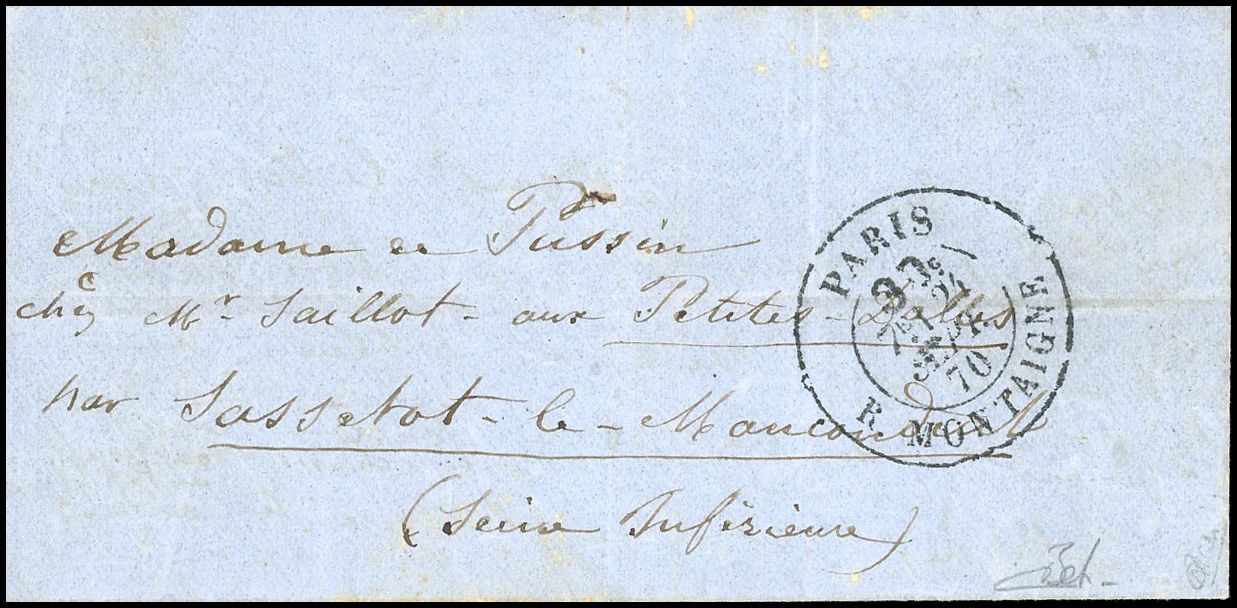 Madame de Pussin
chez Mr. Saillot - aux Petites-Dalles
par Sassetot-le-Mauconduit
(Seine Inférieure)
PARIS
R. MONTAIGNE
SEPT.
70